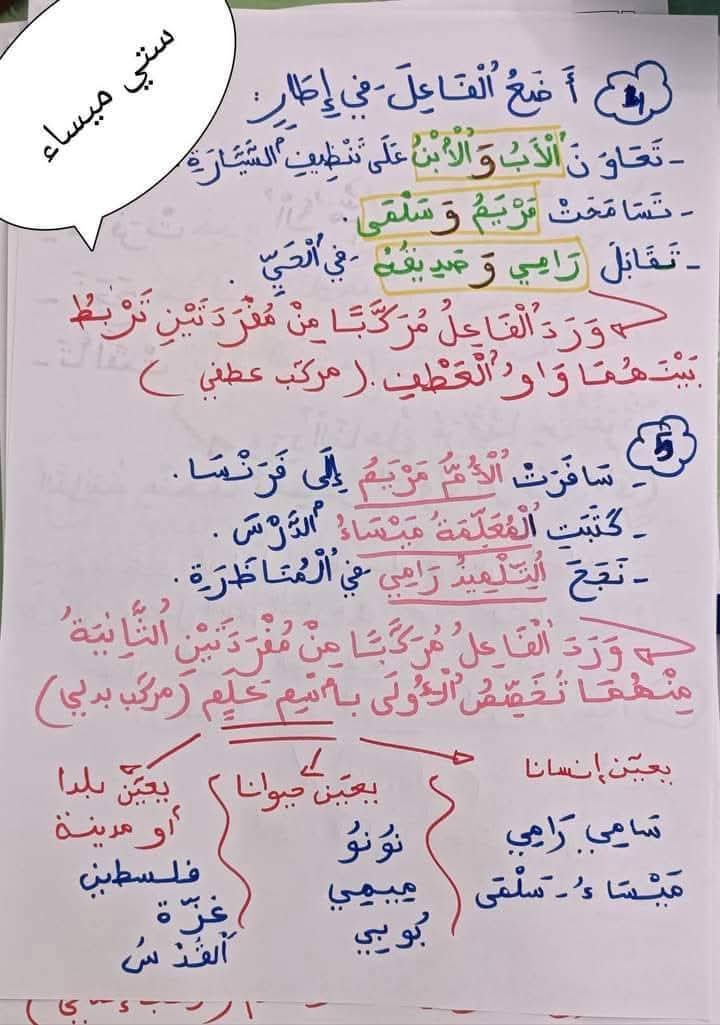 ستي ميساء
4 أَضَعُ الْفَاعِلَ فِي إِطَارٍ :
- تَعَاوَنَ الْأَبُ وَ الْأِبْنُ عَلَى تَنْظِيفِ السَّيَّارَةِ
- تَسَامَحَتْ مَرْيَمُ وَ سَلْمَى .
- تَقَابَلَ رَامِي وَ صَدِيقُهُ فِي الْحَيِّ .
وَرَدَ الْفَاعِلُ مُرَكَّبًا مِنْ مُفْرَدَتَيْنِ تَرْبِطُ
بَيْنَهُمَا وَاوُ الْعَطْفِ . ( مركب عطفي )
5
- سَافَرَتْ الْأُمُّ مَرْيَمُ إِلَى فَرَنْسَا .
- كَتَبَتِ الْمُعَلِّمَةُ مَيْسَاءُ الدَّرْسَ .
- نَجَحَ التِّلْمِيذُ رَامِي فِي الْمُنَاظَرَةِ .
وَرَدَ الْفَاعِلُ مُرَكَّبًا مِنْ مُفْرَدَتَيْنِ الثَّانِيَةُ
مِنْهُمَا تُخَصِّصُ الْأُولَى بِاسْمِ عَلَمٍ ( مركب بدلي )
يعيّن إنسانا
سَامِي رَامِي
مَيْسَاءُ - سَلْمَى
يعيّن حيوانا
نُونُو
مِيمِي
بُوبِي
يعيّن بلدا
أو مدينة
فلسطين
غزّة
القُدْسُ